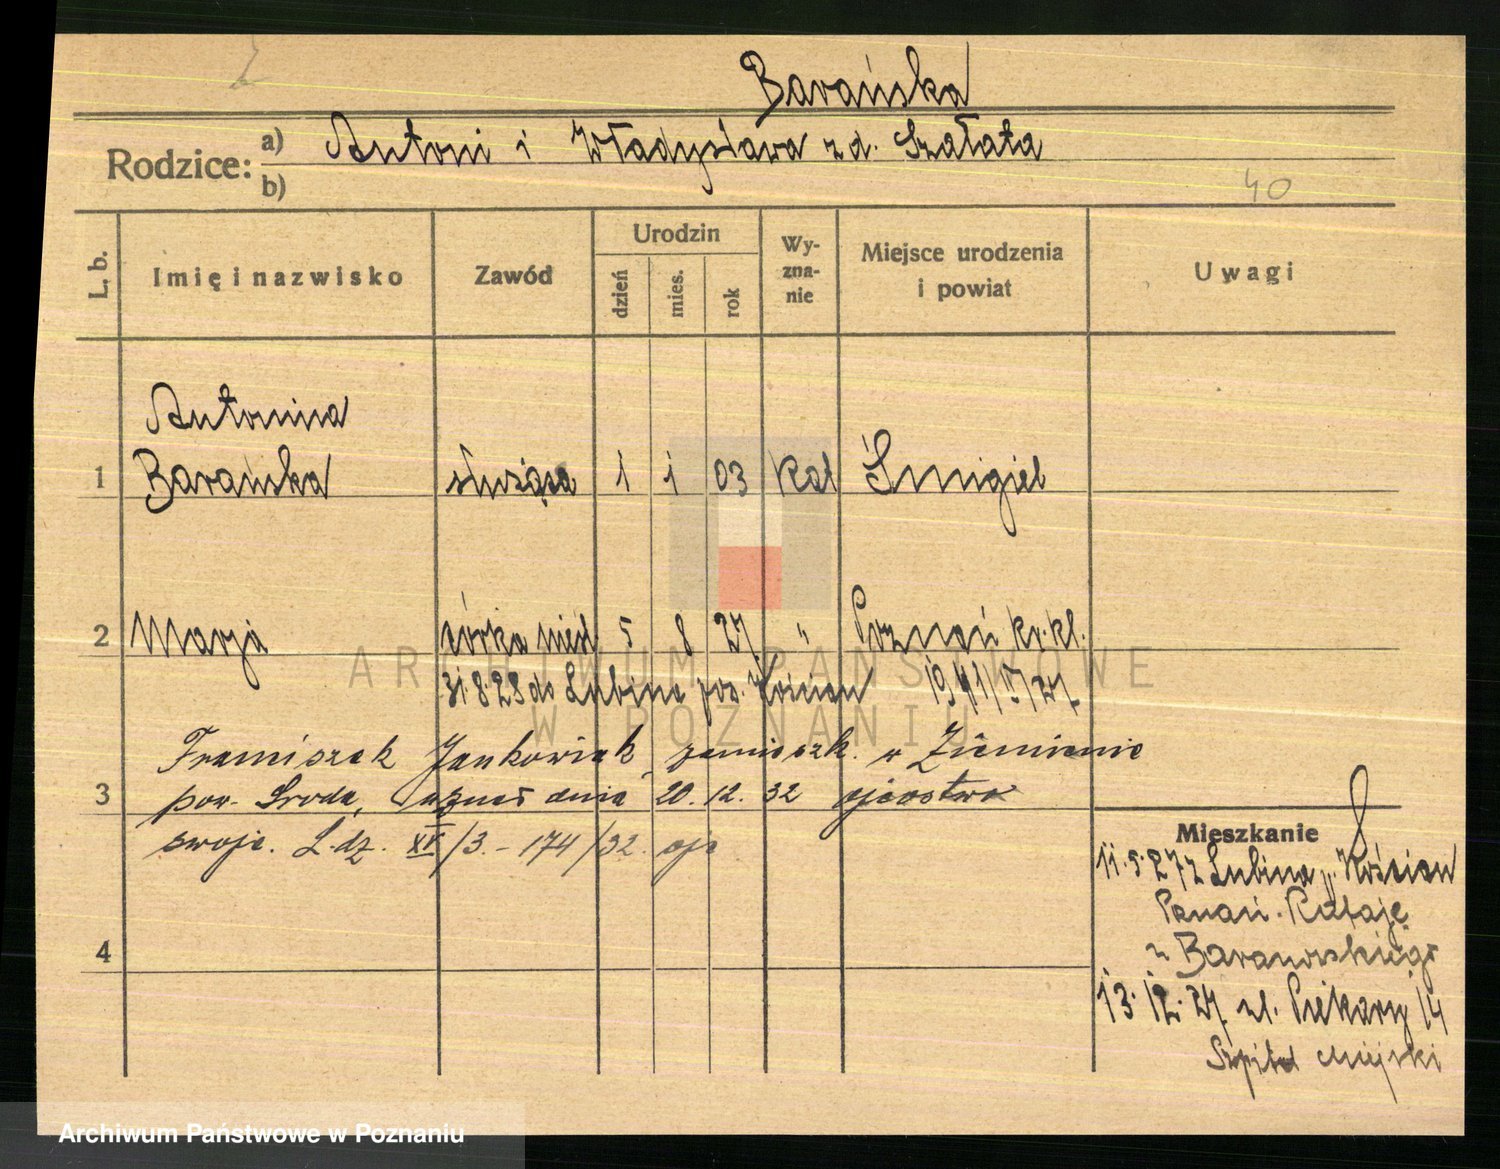 Barańska
Rodzice: a) Antoni i Władysława zd. Szałata
b)
40
L. b.
Imię i nazwisko
Zawód
Urodzin
dzień
mies.
rok
Wy-
zna-
nie
Miejsce urodzenia
i powiat
Uwagi
Antonina
1 Barańska służąca 1 1 03 Kat Śmigiel
2 Marja córka nieśl. 5 8 27. " Poznań kr. kl.
31.8.28 do Lubina pow. Kościan
Franciszek Jankowiak zamieszk. w Zimienie
3 pow. Środa, uznał dnia 20. 12. 32 ojcostwo
swoje. L. dz. XV/3. - 174/32.
Mieszkanie
11.5.27 z Lubina, Kościan
Poznań. Rataje
u Baranowskiego
13.12.27. ul. Piekary 14
Szpital Miejski
4
ARCHIWUM PAŃSTWOWE
W POZNANIU
Archiwum Państwowe w Poznaniu